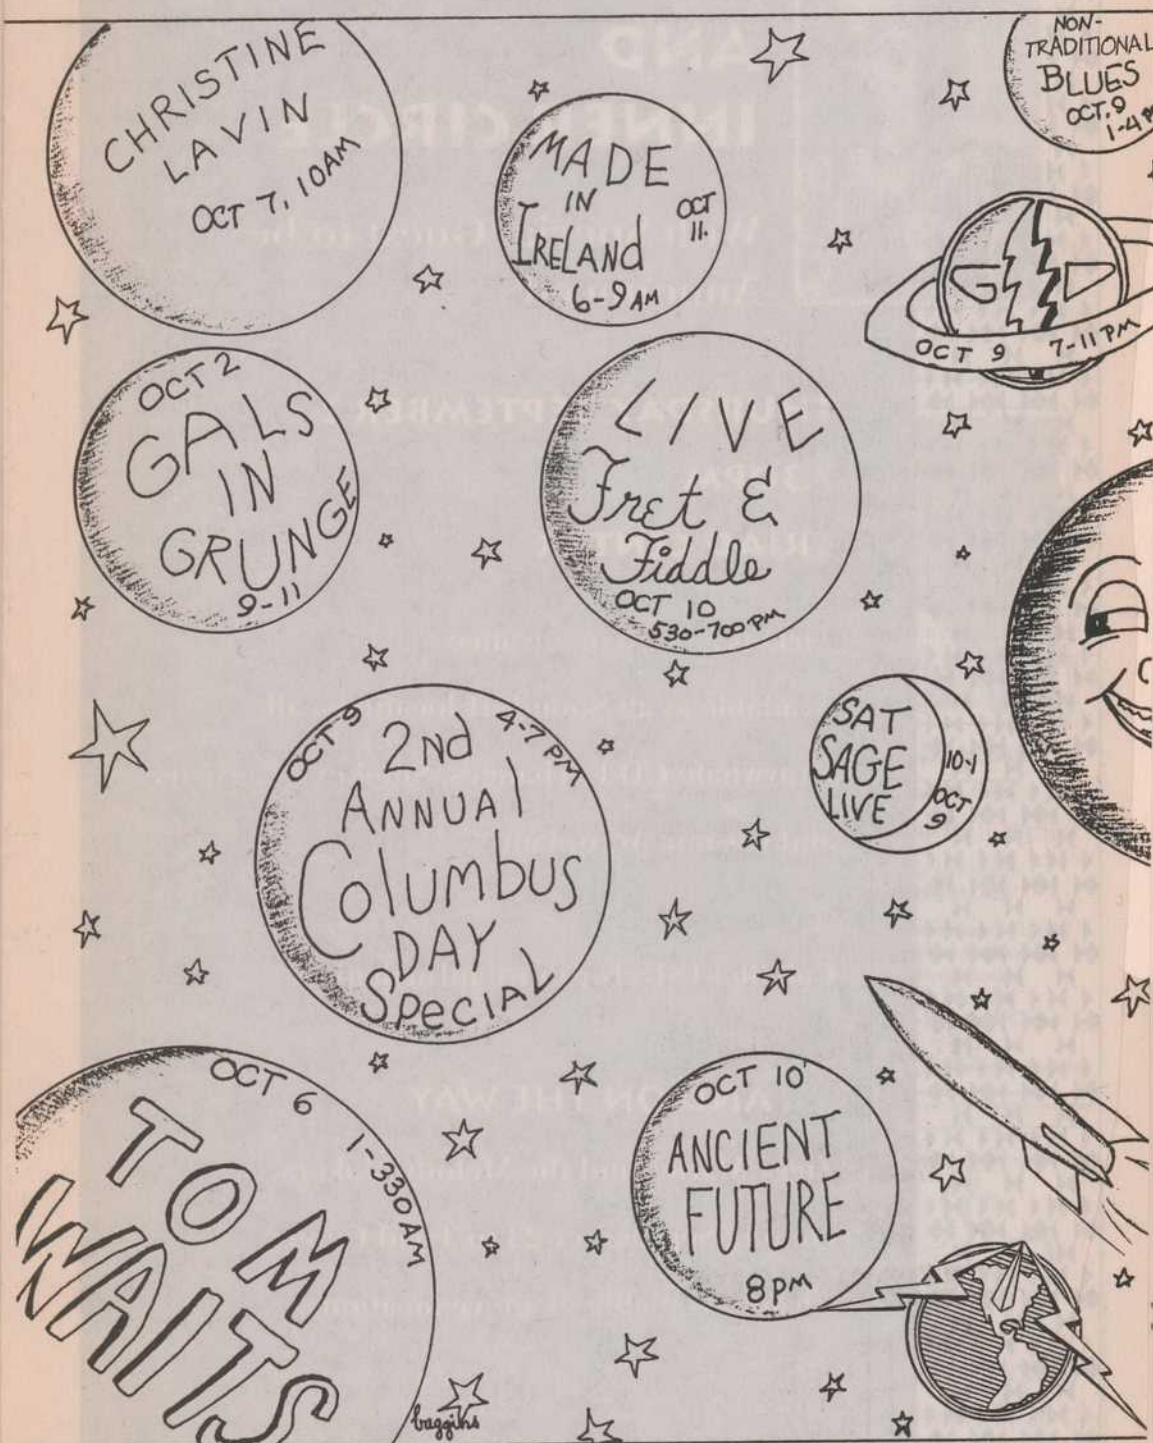 CHRISTINE
LAVIN
OCT 7, 10AM
MADE
IN
IRELAND
OCT
11.
6-9 AM
NON-
TRADITIONAL
BLUES
OCT. 9
1-4 P
G D
OCT 9 7-11 PM
OCT 2
GALS
IN
GRUNGE
9-11
LIVE
Fret &
Fiddle
OCT 10
530-700 PM
OCT 9
4-7 PM
2nd
ANNUAL
Columbus
DAY
Special
SAT
SAGE
LIVE
10-1
OCT
9
OCT 6
1-330 AM
TOM
WAITS
OCT 10
ANCIENT
FUTURE
8pm
baggins